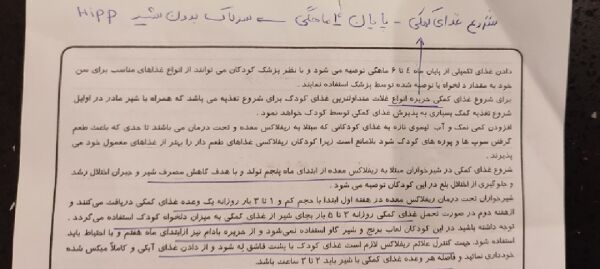 شروع غذای کمکی - پایان ۴ ماهگی سرلاک بدون شیر Hipp
دادن غذای تکمیلی از پایان ماه ٤ تا ۶ ماهگی توصیه می شود و با نظر پزشک کودکان می توانند از انواع غذاهای مناسب برای سن
خود به مقدار دلخواه یا توصیه شده توسط پزشک استفاده نمایند.
برای شروع غذای کمکی حریره انواع غلات متداولترین غذای کودک برای شروع تغذیه می باشد که همراه با شیر مادر در اوایل
شروع تغذیه کمک بسیاری به پذیرش غذای کمکی توسط کودک خواهد نمود.
افزودن کمی نمک و آب لیموی تازه به غذای کودکانی که مبتلا به ریفلاکس معده و تحت درمان می باشند تا حدی که باعث طعم
گرفتن سوپ ها و پوره های کودک شود بلامانع است زیرا کودکان ریفلاکسی غذاهای طعم دار را بهتر از غذاهای معمول خود می
پذیرند.
شروع غذای کمکی در شیرخواران مبتلا به ریفلاکس معده از ابتدای ماه پنجم تولد و با هدف کاهش مصرف شیر و جبران اختلال رشد
و جلوگیری از اختلال بلع در این کودکان توصیه می شود.
شیرخواران تحت درمان ریفلاکس معده در هفته اول ابتدا با حجم کم و ۱ تا ۳ بار روزانه یک وعده غذای کمکی دریافت می‌کنند و
ازهفته دوم در صورت تحمل غذای کمکی روزانه ۲ تا ۵ بار بجای شیر از غذای کمکی به میزان دلخواه کودک استفاده می‌گردد.
توجه داشته باشید در این کودکان لعاب برنج و شیر گاو استفاده نمی‌شود و از حریره بادام نیز ازابتدای ماه هفتم و با احتیاط باید
استفاده شود. جهت کنترل علائم ریفلاکس لازم است غذای کودک با پشت قاشق له شود و از دادن غذای آبکی و کاملاً میکس شده
خودداری نمائید و فاصله هر وعده غذای کمکی با شیر باید ۲ تا ۳ ساعت باشد.